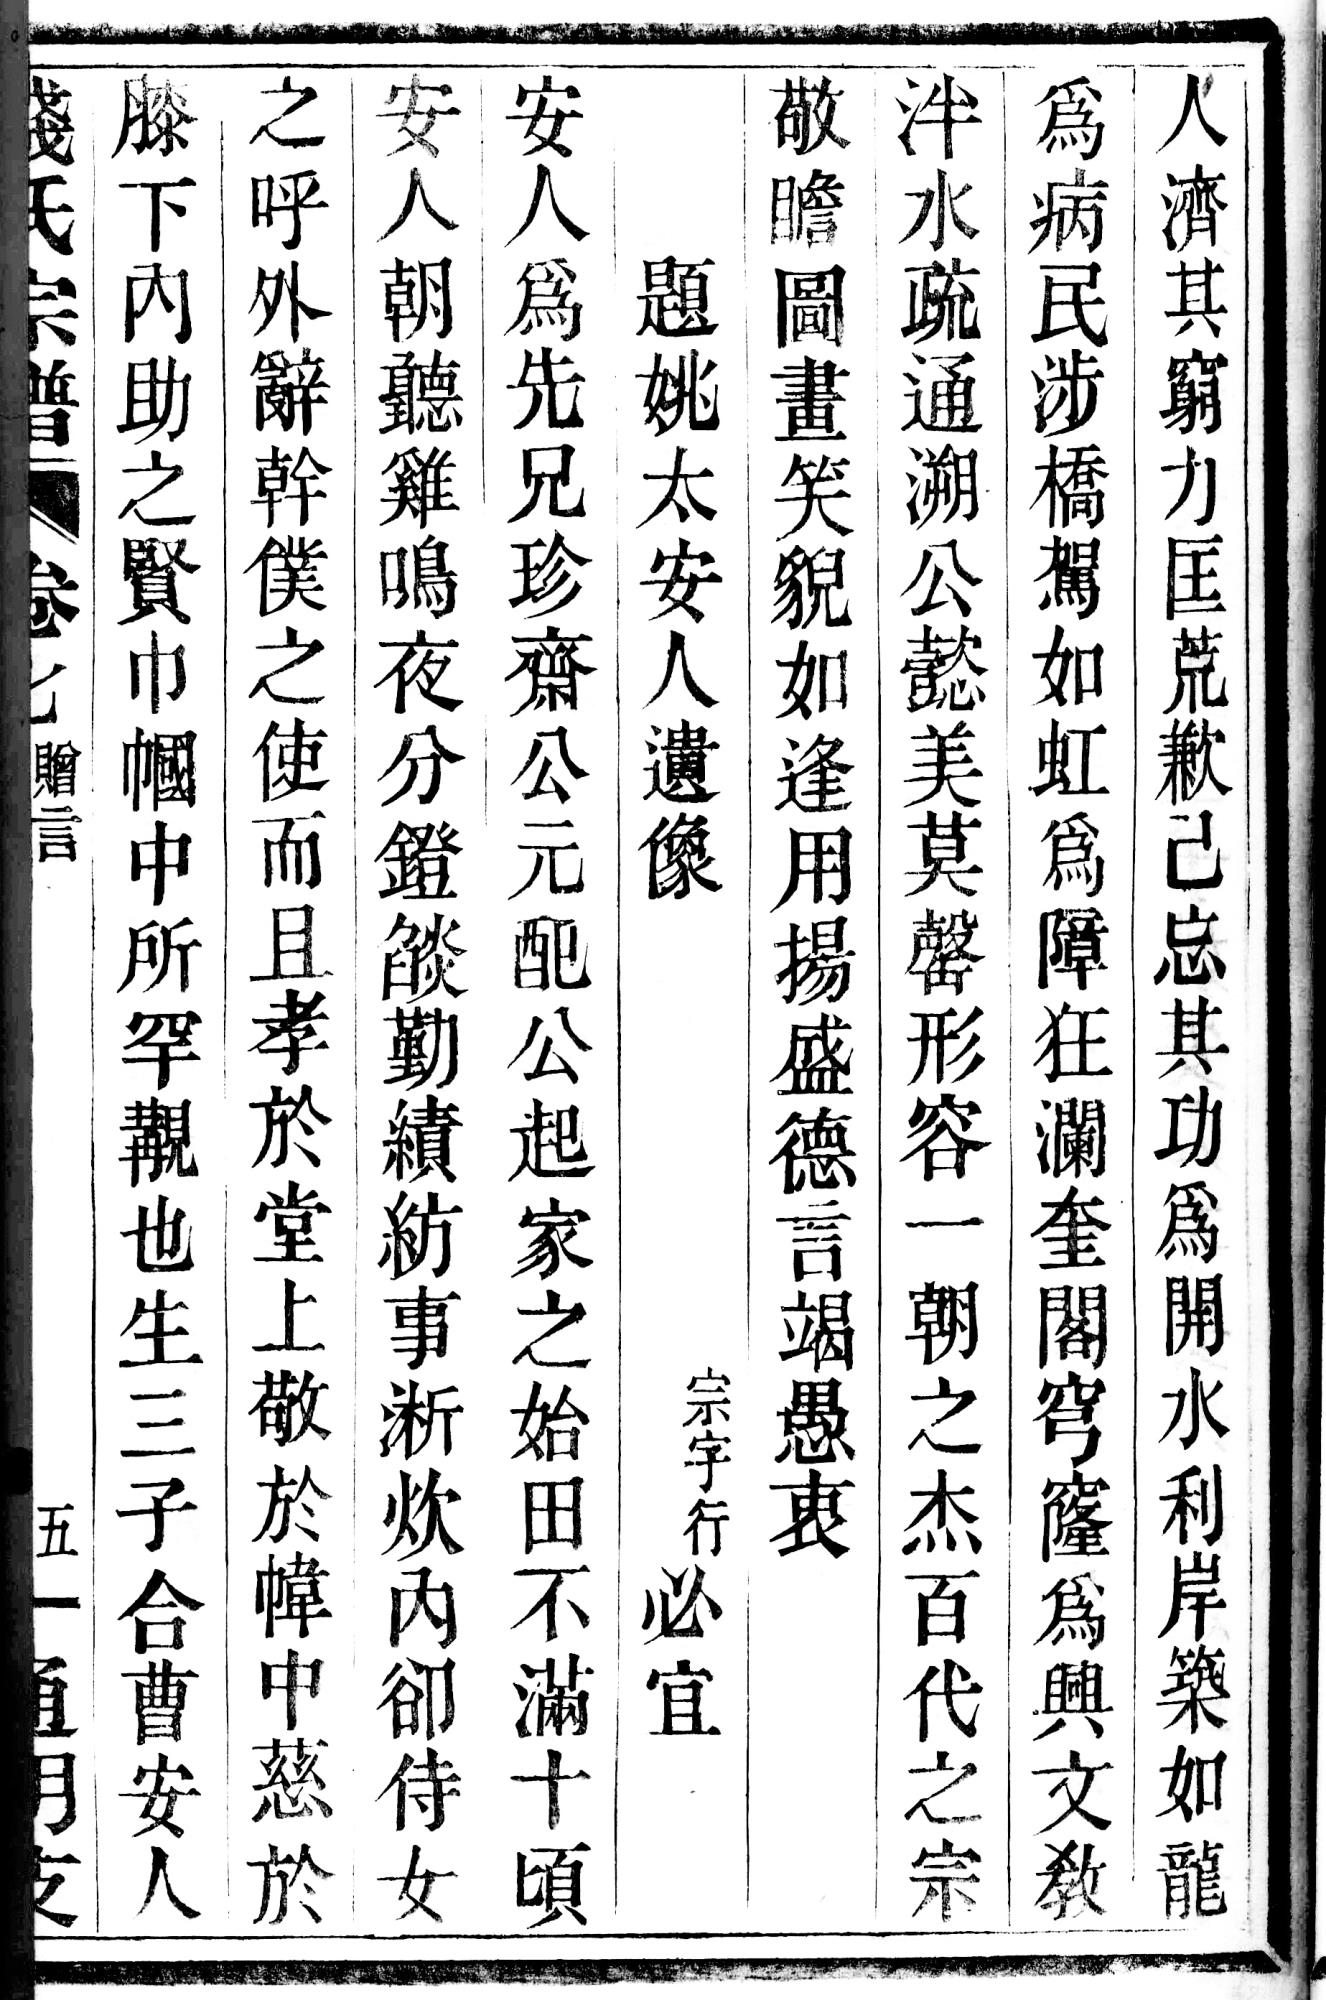 人濟其窮力匡荒歉己忘其功爲開水利岸築如龍
爲病民涉橋駕如虹爲障狂瀾奎閣穹窿爲興文教
泮水疏通溯公懿美莫罄形容一朝之杰百代之宗
敬瞻圖畫笑貌如逢用揚盛德言竭愚衷
題姚太安人遺像
宗字行必宜
安人爲先兄珍齋公元配公起家之始田不滿十頃
安人朝聽雞鳴夜分鐙燄勤績紡事淅炊內卻侍女
之呼外辭幹僕之使而且孝於堂上敬於幃中慈於
膝下內助之賢巾幗中所罕覯也生三子合曹安人
錢氏宗譜
卷七
贈言
五一
通明支